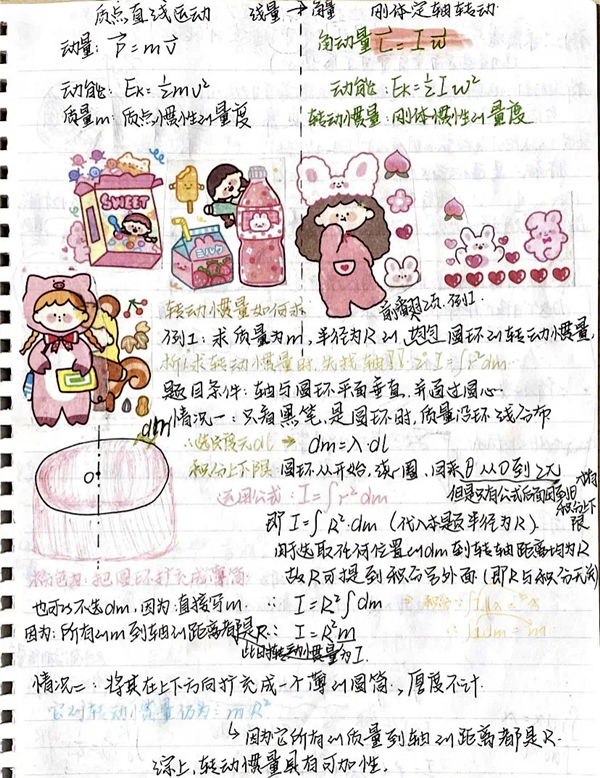 质点直线运动 线量→角量 刚体定轴转动
动量: P=mv 角动量 L=Iw
动能: Ek=½mv² 动能: Ek=½Iw²
质量m: 质点惯性的量度 转动惯量: 刚体惯性的量度
SWEET
ミルク
转动惯量如何求
例1: 求质量为m, 半径为R的 圆环的转动惯量,
析: 求转动惯量时, 先找轴 I=∫r²dm
题目条件: 轴与圆环平面垂直, 并通过圆心
情况一: 只看黑笔, 是圆环时, 质量沿环线分布
dm
∴选长度元dl → dm=λ·dl
积分上下限 圆环从开始, 绕一圈, 回来 θ从0到2π
运用公式: I=∫r²dm
但是只有公式后面因到θ
积分上下限
即 I=∫R²·dm (代入本题半径为R).
O
因选取任何位置的dm到转轴距离均为R
粉色为: 把圆环扩充成薄筒
故R可提到积分号外面 (即R与积分无关)
也可以不选dm, 因为: 直接写m. ∴ I=R²∫dm
积分: ∫1dx=x
因为: 所有的m到轴的距离都是R: I=R²m
∴∫1dm=m
此时转动惯量为I.
情况二: 将其在上下方向扩充成一个薄的圆筒, 厚度不计.
它的转动惯量仍为: mR²
↳因为它所有的质量到轴的距离都是R.
综上, 转动惯量具有可加性.